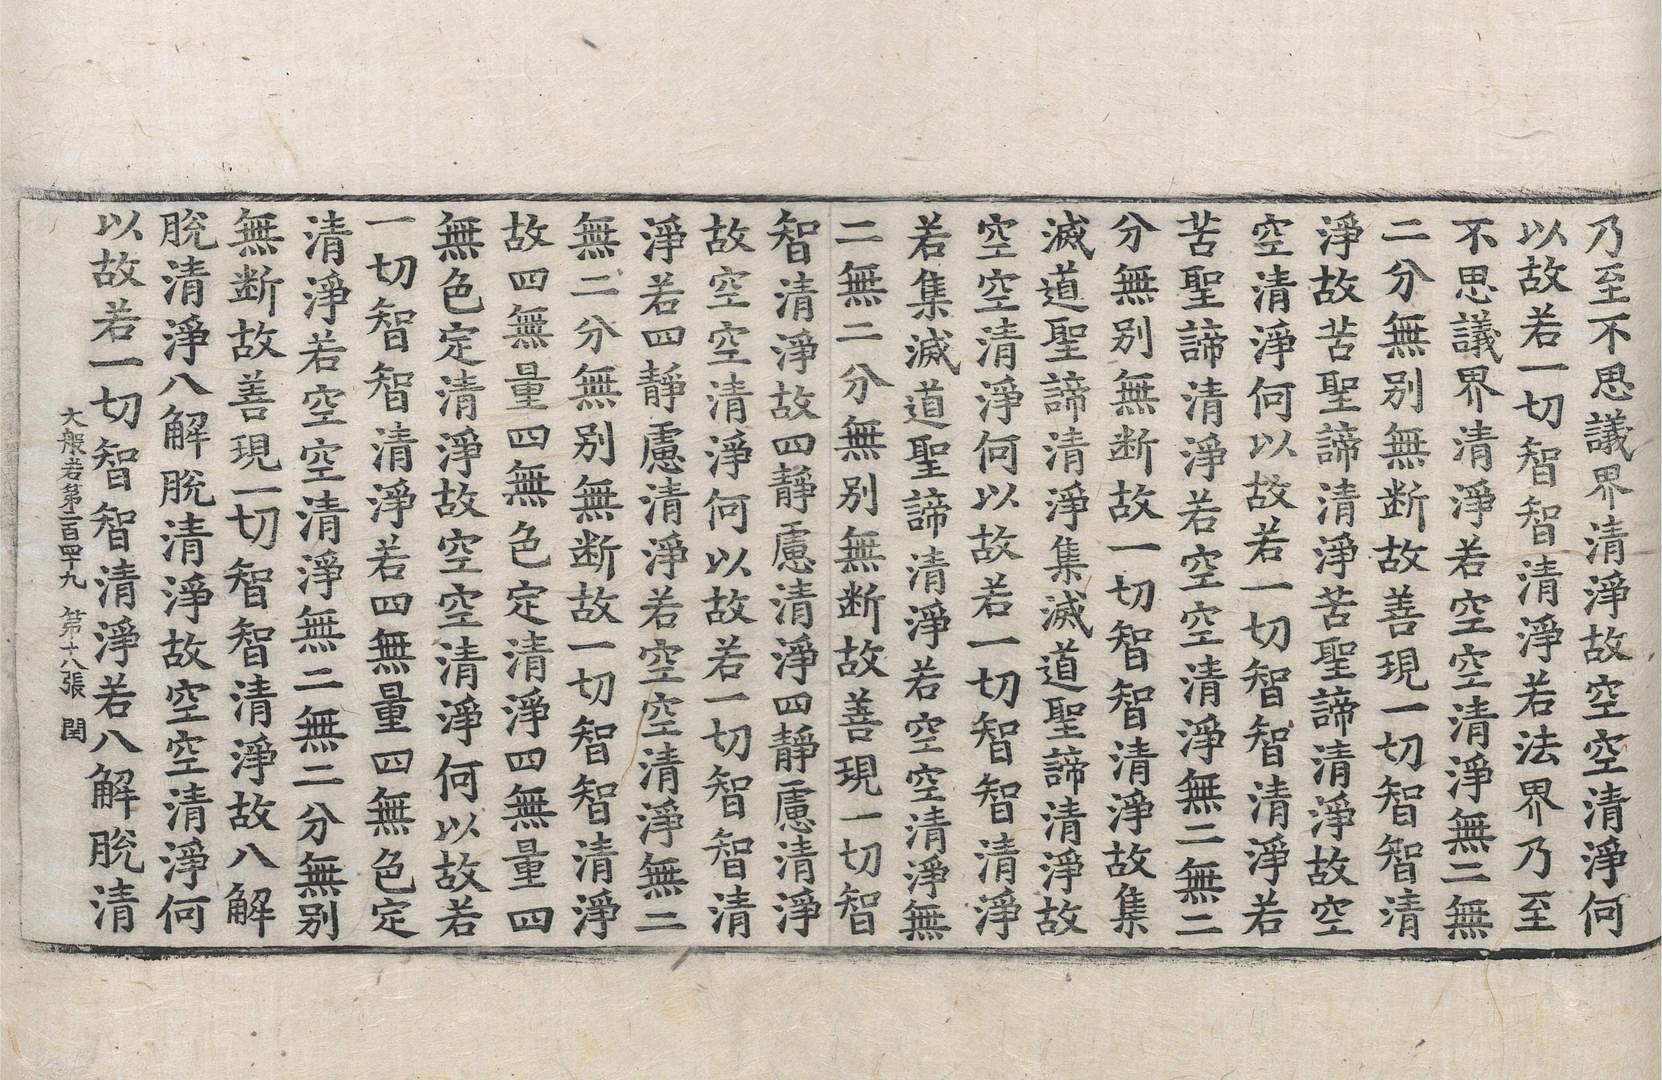 乃至不思議界清淨故空空清淨何
以故若一切智智清淨若法界乃至
不思議界清淨若空空清淨無二無
二分無别無断故善現一切智智清
淨故苦聖諦清淨苦聖諦清淨故空
空清淨何以故若一切智智清淨若
苦聖諦清淨若空空清淨無二無二
分無别無断故一切智智清淨故集
滅道聖諦清淨集滅道聖諦清淨故
空空清淨何以故若一切智智清淨
若集滅道聖諦清淨若空空清淨無
二無二分無别無断故善現一切智
智清淨故四靜慮清淨四靜慮清淨
故空空清淨何以故若一切智智清
淨若四靜慮清淨若空空清淨無二
無二分無别無断故一切智智清淨
故四無量四無色定清淨四無量四
無色定清淨故空空清淨何以故若
一切智智清淨若四無量四無色定
清淨若空空清淨無二無二分無别
無断故善現一切智智清淨故八解
脫清淨八解脫清淨故空空清淨何
以故若一切智智清淨若八解脫清
大般若第二百四十九 第十八張 閏